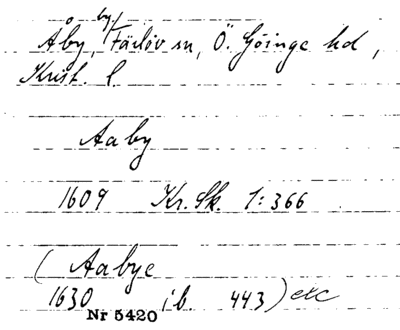 Åby, by, Färlöv sn, Ö. Göinge hd,
Krist. l.
Aaby
1609 Kr. Sk. 1:366
( Aabye
1630 ib. 443) etc
Nr 5420